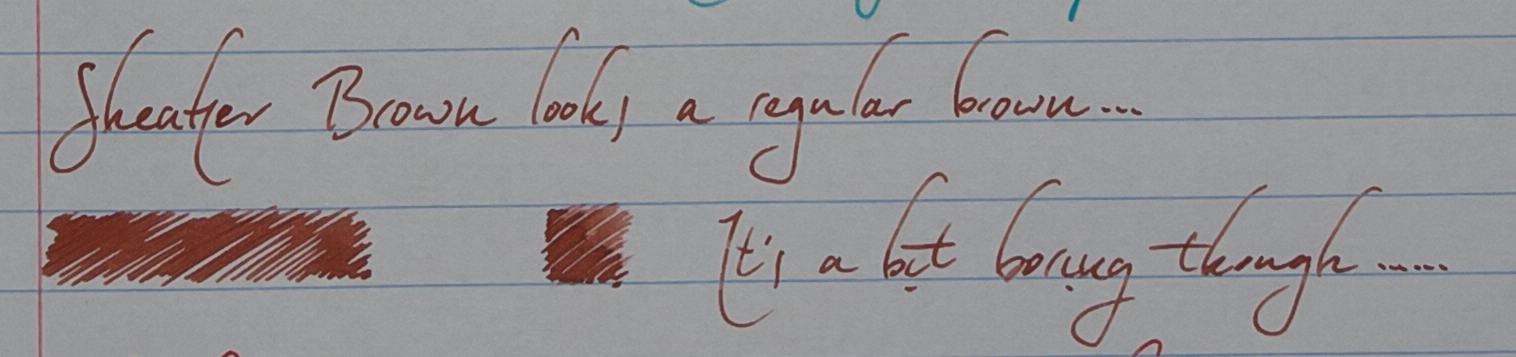 Sheaffer Brown looks a regular brown...
It's a bit boring though......